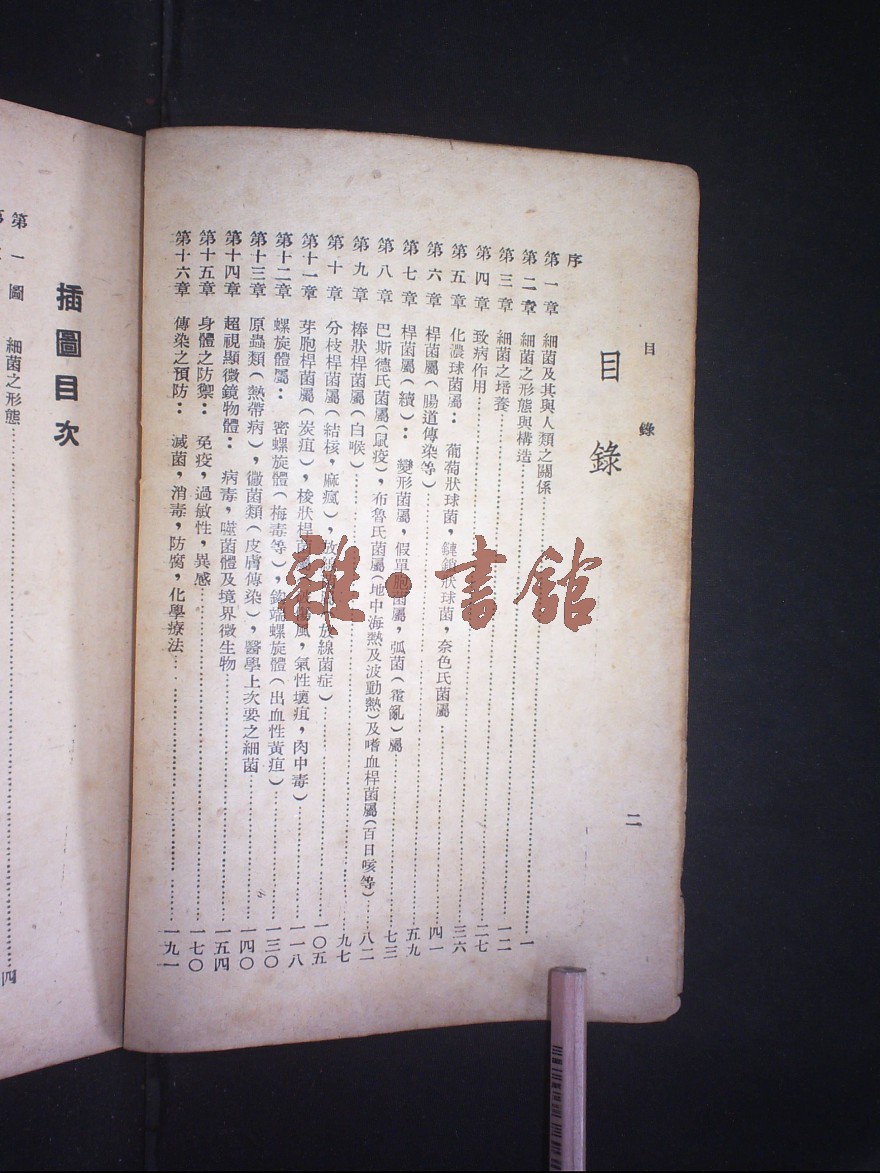 目錄
二
目錄
序
第一章 細菌及其與人類之關係……一
第二章 細菌之形態與構造……一二
第三章 細菌之培養……二七
第四章 致病作用……三六
第五章 化濃球菌屬：葡萄狀球菌，鏈鎖狀球菌，奈色氏菌屬……四一
第六章 桿菌屬（腸道傳染等）……五九
第七章 桿菌屬（續）：變形菌屬，假單胞菌屬，弧菌（霍亂）屬……七三
第八章 巴斯德氏菌屬（鼠疫），布魯氏菌屬（地中海熱及波動熱）及嗜血桿菌屬（百日咳等）……八二
第九章 棒狀桿菌屬（白喉）……九七
第十章 分枝桿菌屬（結核，麻瘋），放線菌屬（放線菌症）……一〇五
第十一章 芽胞桿菌屬（炭疽），梭狀桿菌屬（破傷風，氣性壞疽，肉中毒）……一一八
第十二章 螺旋體屬：密螺旋體（梅毒等），鉤端螺旋體（出血性黃疸）……一三〇
第十三章 原蟲類（熱帶病），黴菌類（皮膚傳染），醫學上次要之細菌……一四〇
第十四章 超視顯微鏡物體：病毒，噬菌體及境界微生物……一五四
第十五章 身體之防禦：免疫，過敏性，異感……一七〇
第十六章 傳染之預防：滅菌，消毒，防腐，化學療法……一九一
插圖目次
第一圖 細菌之形態……四
第
雜·書館